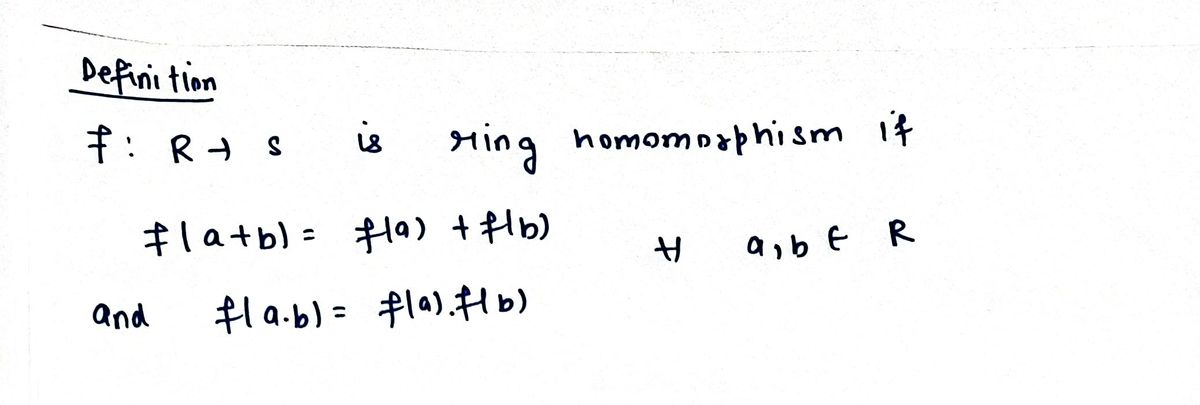 Definition
f: R → S is ring homomorphism if
f(a+b) = f(a) + f(b) ∀ a, b ∈ R
and f(a.b) = f(a).f(b)